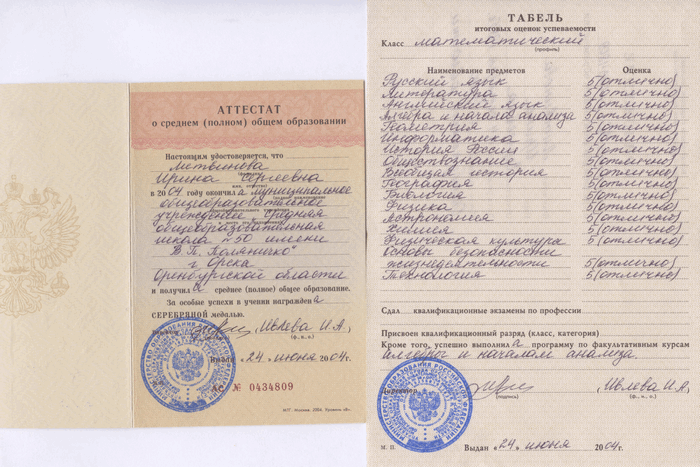 АТТЕСТАТ
о среднем (полном) общем образовании
Настоящим удостоверяется, что
Литвинова
Ирина Сергеевна
в 2004 году окончила муниципальное
общеобразовательное
учреждение средняя
общеобразовательная
школа №50 имени
В.П. Поляничко
г. Орска
Оренбургской области
и получила среднее (полное) общее образование.
За особые успехи в учении награждена
СЕРЕБРЯНОЙ медалью.
(Ивлева И.А.)
(ф., и., о.)
Выдан «24» июня 2004г.
№ 0434809
ТАБЕЛЬ
итоговых оценок успеваемости
Класс математический
(профиль)
Наименование предметов Оценка
Русский язык 5(отлично)
Литература 5(отлично)
Английский язык 5(отлично)
Алгебра и начала анализа 5(отлично)
Геометрия 5(отлично)
Информатика 5(отлично)
История России 5(отлично)
Обществознание 5(отлично)
Всеобщая история 5(отлично)
География 5(отлично)
Биология 5(отлично)
Физика 5(отлично)
Астрономия 5(отлично)
Химия 5(отлично)
Физическая культура 5(отлично)
Основы безопасности
жизнедеятельности 5(отлично)
Технология 5(отлично)
Сдал квалификационные экзамены по профессии
Присвоен квалификационный разряд (класс, категория)
Кроме того, успешно выполнила программу по факультативным курсам
алгебры и началам анализа.
Директор (Ивлева И.А.)
(подпись) (ф., и., о.)
М. П. Выдан «24» июня 2004г.